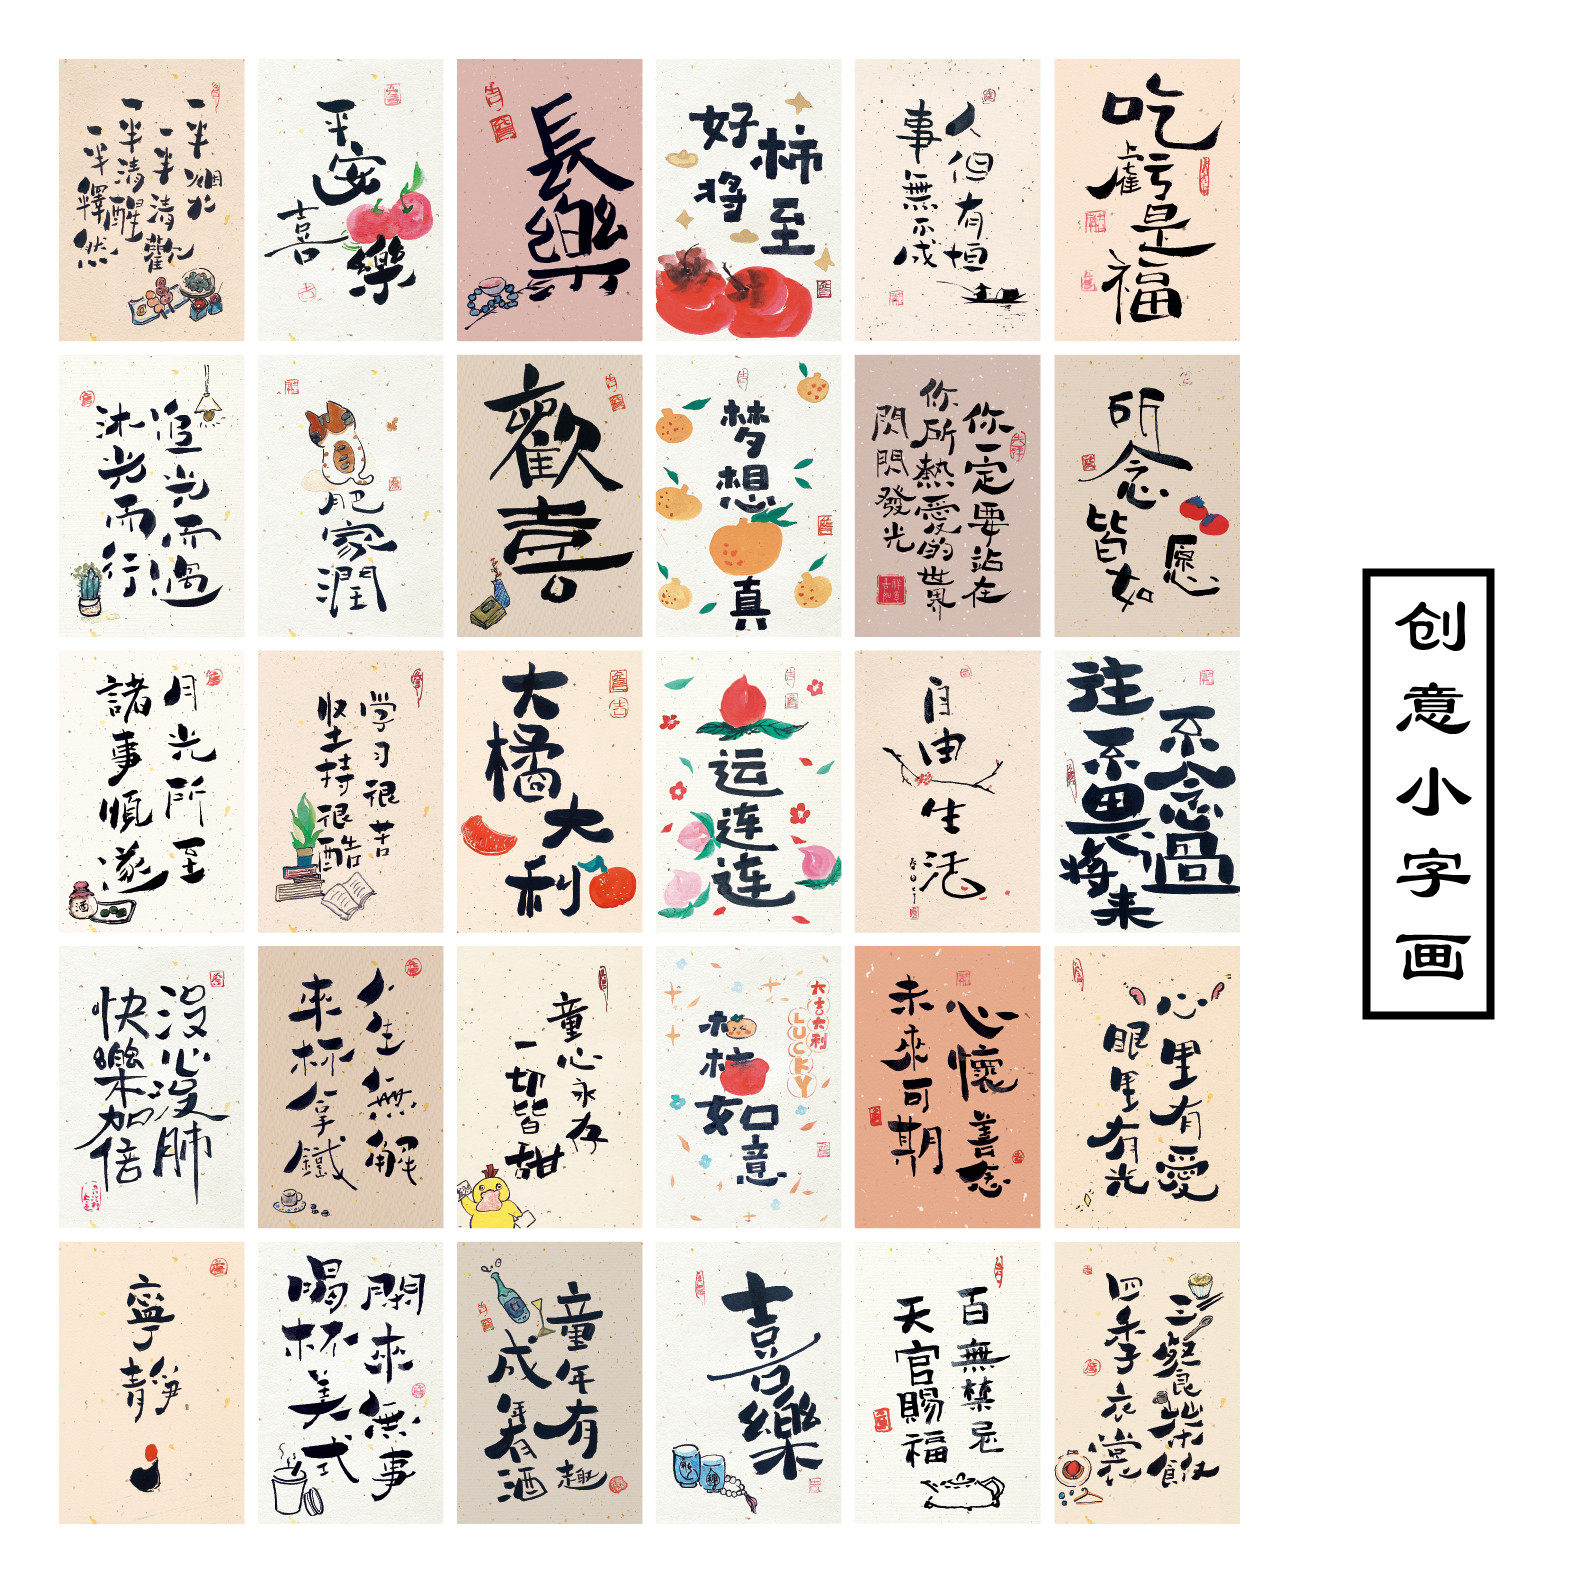 一半烟火
一半清歡
一半清醒
一半釋然
平安
喜樂
長樂
柿至
好將
人但有恒
事無不成
吃虧是福
追光而遇
沐光而行
肥家潤
歡喜
梦想
真
你一定要站在
你所熱愛的世界
閃閃發光
所念皆如
愿
月光所至
諸事順遂
学习很苦
坚持很酷
大橘
大利
运连连
自由
生活
不念過
往不畏
將来
沒心沒肺
快樂加倍
人生無解
來杯拿鐵
童心永存
一切皆甜
大吉大利
LUCKY
柿柿
如意
心懷善念
未來可期
心里有愛
眼里有光
寧靜
閑來無事
喝杯美式
童年有趣
成年有酒
喜樂
百無禁忌
天官賜福
三餐茶飯
四季衣裳
创意小字画